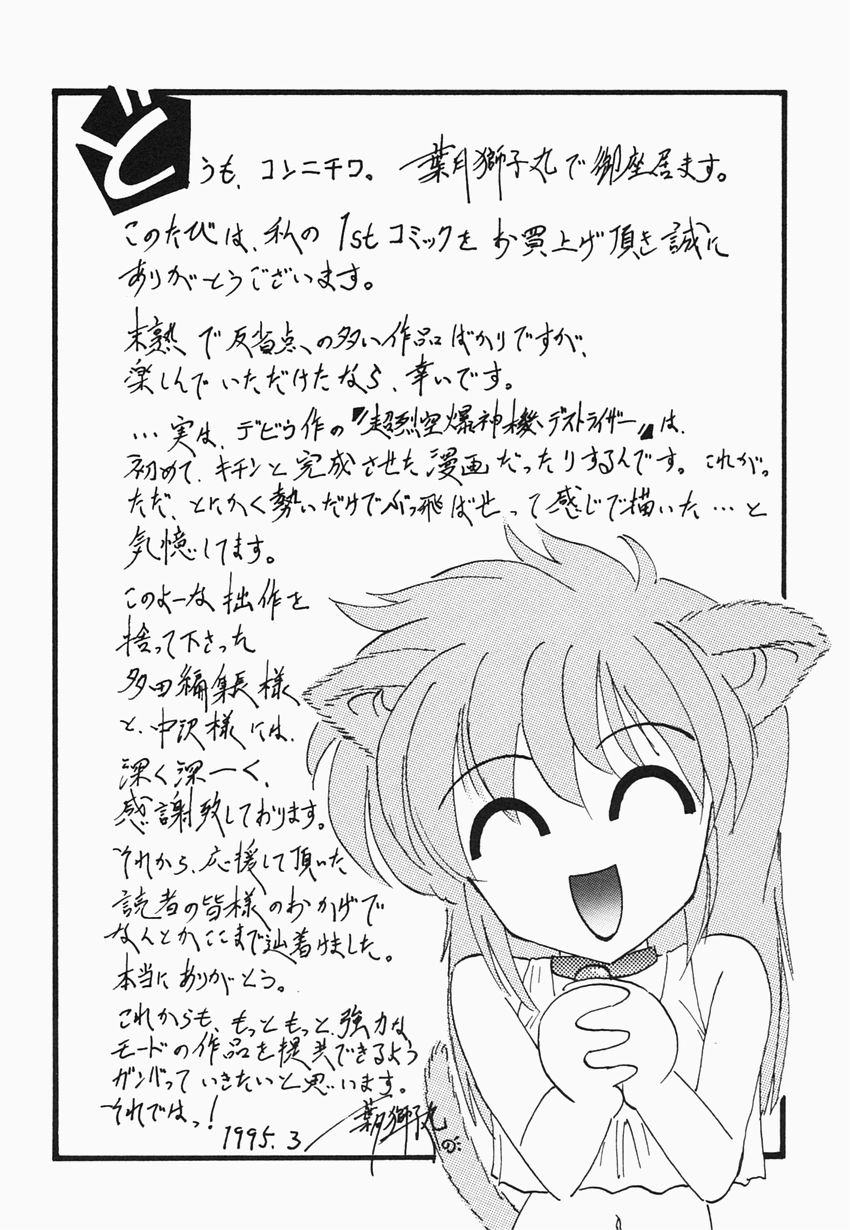 どうも、コンニチワ。 葉月獅子丸で御座居ます。
このたびは、私の 1stコミックを お買上げ頂き誠に
ありがとうございます。
未熟で反省点の多い作品ばかりですが、
楽しんでいただけたなら、幸いです。
…実は、デビゥ作の〝超烈空爆神機デストライザー〟は、
初めて、キチンと完成させた漫画だったりするんです。これがっ
ただ、とにかく勢いだけでぶっ飛ばせって感じで描いた…と
気憶してます。
このよーな拙作を
捨って下さった
多田編集長様
と、中沢様には、
深く深ーく、
感謝致しております。
それから、応援して頂いた
読者の皆様のおかげで
なんとかここまで辿着けました。
本当にありがとう。
これからも、もっともっと、強力な
モードの作品を提供できるよう
ガンバって いきたいと思います。
それではっ!
1995.3 葉月獅子丸